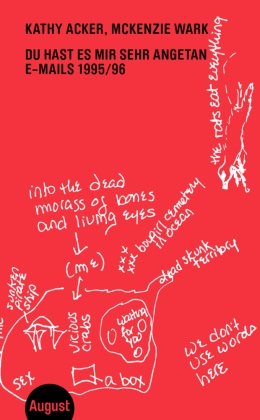 KATHY ACKER, MCKENZIE WARK
DU HAST ES MIR SEHR ANGETAN
E-MAILS 1995/96
the rats eat everything
into the dead
morass of bones
and living eyes
(me)
xxx
xxx bougirl cemetery
in ocean
dead skunk
territory
sunken
pirate
ship
vicious
crabs
waiting
for
you
we don't
use words
here
sex
a box
August